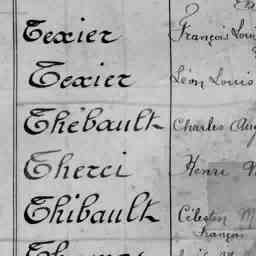 Texier François Louis
Texier Léon Louis
Thébault Charles Aug
Therci Henri
Thibault Célestin M
François